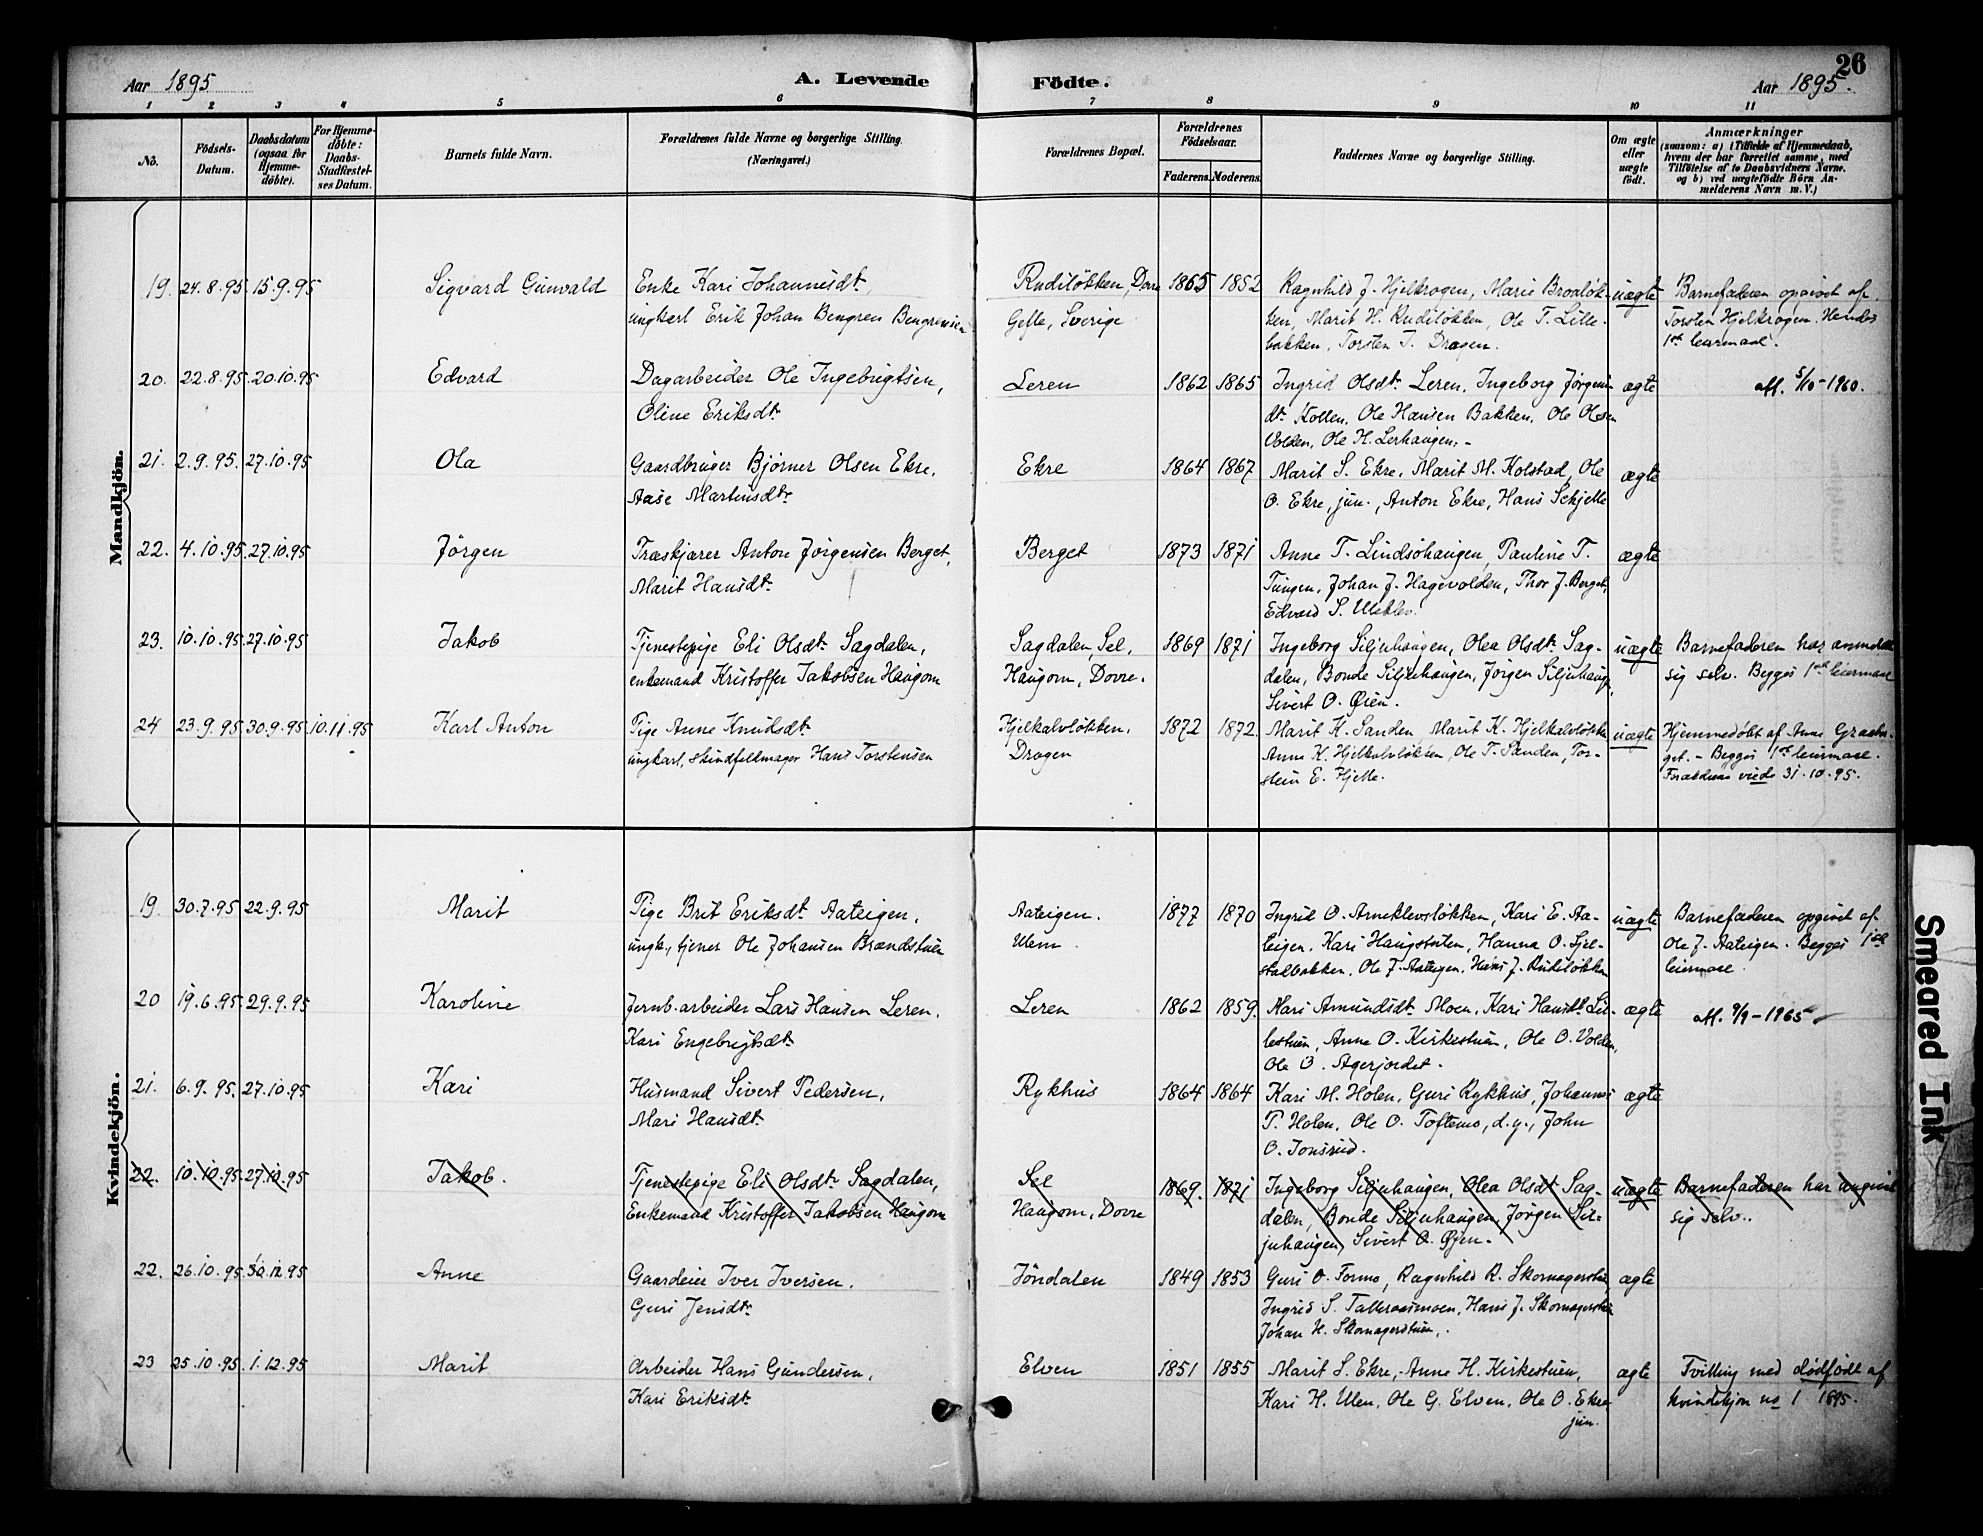 26
Aar 1895 A. Levende Födte. Aar 1895.
1 2 3 4 5 6 7 8 9 10 11
No. Födsels-Datum. Daabsdatum (ogsaa for Hjemmedöbte). For Hjemmedöbte: Daabs-Stadfæstelses Datum. Barnets fulde Navn. Forældrenes fulde Navne og borgerlige Stilling. (Næringsvei.) Forældrenes Bopæl. Forældrenes Födselsaar. Faderens. Moderens. Faddernes Navne og borgerlige Stilling. Om ægte eller uægte födt. Anmærkninger (saasom: a) i Tilfælde af Hjemmedaab, hvem der har forrettet samme, med Tilföielse af to Daabsvidners Navne, og b) ved uægtefödte Börn Anmelderens Navn m. V.)
Mandkjön.
19. 24.8.95. 15.9.95 Sigvard Gunvald Enke Kari Johannesdt., Rudiløkken, Dovre 1865 1852 Ragnhild J. Hjelkrogen, Marie Broaløk- uægte Barnefaderen opgivet af
ungkarl Erik Johan Bengren Bengrensen Gefle, Sverige ken, Marit H. Rudiløkken, Ole T. Lille- Torsten Hjelkrogen. Hendes
bakken, Torsten T. Dragen. 1ste leiermaal.
20. 22.8.95. 20.10.95 Edvard Dagarbeider Ole Ingebrigtsen, Leren 1862 1865 Ingrid Olsdt. Leren, Ingeborg Jørgens- ægte Att. 5/10-1960.
Oline Eriksdt. dt. Kollen, Ole Hansen Bakken, Ole Olsen
Volden, Ole H. Lerhaugen. -
21. 2.9.95. 27.10.95 Ola Gaardbruger Bjørner Olsen Ekre, Ekre 1864 1867 Marit S. Ekre, Marit M. Kolstad, Ole ægte
Aase Martinsdt. O. Ekre, jun., Anton Ekre, Hans Schjelle
22. 4.10.95. 27.10.95 Jörgen Træskjærer Anton Jørgensen Berget, Berget 1873 1871 Anne T. Lindsøhaugen, Pauline T. ægte
Marit Hansdt. Tungen, Johan J. Hagevolden, Thor J. Berget,
Edvard S. Uleklev.
23. 10.10.95. 27.10.95 Jakob Tjenestepige Eli Olsdt. Sagdalen, Sagdalen, Sel, 1869 1871 Ingeborg Siljuhaugen, Olea Olsdt. Sag- uægte Barnefaderen har anmeldt
enkemand Kristoffer Jakobsen Haugom Haugom, Dovre. dalen, Bonde Siljuhaugen, Jørgen Siljuhaug, sig selv. Begges 1ste leiermaal
Sivert O. Øien.
24 23.9.95. 30.9.95. 10.11.95 Karl Anton Pige Anne Knudsdt. Hjelkalvløkken, 1872 1872 Marit K. Sanden, Marit K. Hjelkalvløkken uægte Hjemmedöbt af Anne Graaber-
ungkarl, skindfeldmager Hans Torstensen Dragen Anne K. Hjelkalvløkken, Ole T. Sanden, Tor- get. - Begges 1ste leiermaal.
stein E. Hjelle. Forældrene viede 31.10.95.
Kvindekjön.
19. 30.7.95 22.9.95 Marit Pige Brit Eriksdt. Aateigen, Aateigen. 1877 1870 Ingrid O. Arneklevsløkken, Kari E. Aa- uægte Barnefaderen opgivet af
ungk., tjener Ole Johansen Brændstuen Ulen teigen, Kari Haugstuten, Hanna O. Sjel- Ole J. Aateigen. Begges 1ste
stadbakken, Ole J. Aateigen, Hans J. Rudiløkken leiermaal.
20 19.6.95 29.9.95 Karoline Jernb.arbeider Lars Hansen Leren, Leren 1862 1859. Mari Amundsdt. Moen, Kari Hansdt. Lil- ægte Att. 9/9-1965
Kari Engebrigtsdt. lestuen, Anne O. Kirkestuen, Ole O. Volden,
Ole O. Agerjordet.
21. 6.9.95. 27.10.95 Kari Husmand Sivert Pedersen, Rykhus 1864 1864 Kari M. Holen, Guri Rykhus, Johannes ægte
Mari Hansdt. P. Holen, Ole O. Toftemo, d.y., John
O. Jonsrud.
22. 10.10.95. 27.10.95 Jakob. Tjenestepige Eli Olsdt. Sagdalen, Sel 1869. 1871 Ingeborg Siljuhaugen, Olea Olsdt. Sag- uægte Barnefaderen har angivet
Enkemand Kristoffer Jakobsen Haugom Haugom, Dovre dalen, Bonde Siljuhaugen, Jørgen Sil- sig selv.
juhaugen, Sivert O. Øjen.
22. 26.10.95. 30.12.95 Anne Gaardeier Iver Iversen, Jöndalen 1849 1853 Guri O. Formo, Ragnhild R. Skomagerstuen ægte
Guri Jensdt. Ingrid S. Talleraasmoen, Hans J. Skomagerstuen
Johan H. Skomagerstuen.
23 25.10.95. 1.12.95 Marit Arbeider Hans Gundersen, Elven 1851 1855 Marit S. Ekre, Anne H. Kirkestuen, ægte Tvilling med dødfødt af
Kari Eriksdt. Kari H. Ulen, Ole G. Elven, Ole O. Ekre kvindekjøn no 1 1895.
jun.
Smeared Ink